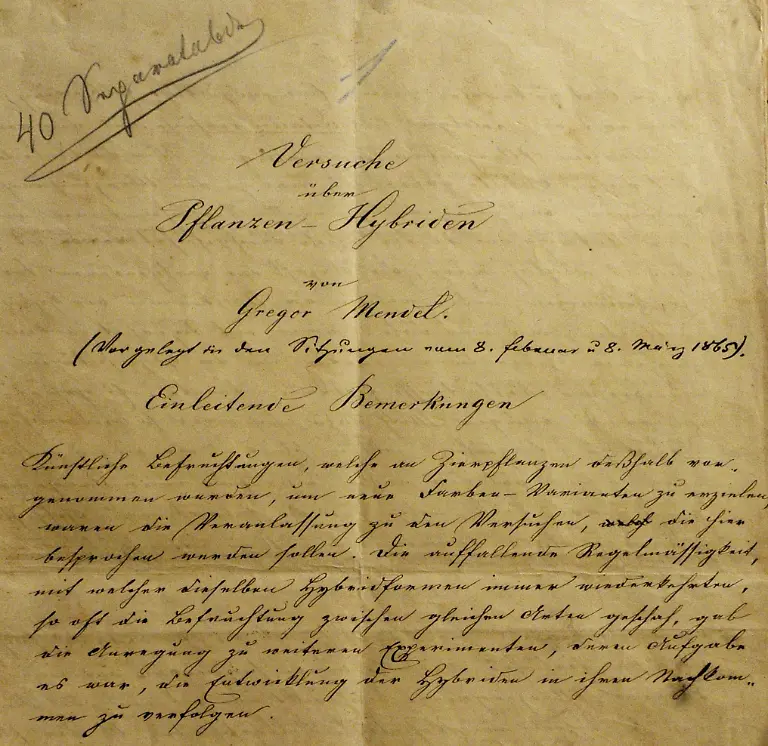 40 Separatabdr
Versuche
über
Pflanzen-Hybriden
von
Gregor Mendel.
(Vorgelegt in den Sitzungen vom 8. Februar u 8. März 1865).
Einleitende Bemerkungen
Künstliche Befruchtungen, welche an Zierpflanzen deßhalb vor-
genommen wurden, um neue Farben-Varianten zu erzielen,
waren die Veranlassung zu den Versuchen, die hier
besprochen werden sollen. Die auffallende Regelmässigkeit,
mit welcher dieselben Hybridformen immer wiederkehrten,
so oft die Befruchtung zwischen gleichen Arten geschah, gab
die Anregung zu weiteren Experimenten, deren Aufgabe
es war, die Entwicklung der Hybriden in ihren Nachkom-
men zu verfolgen.